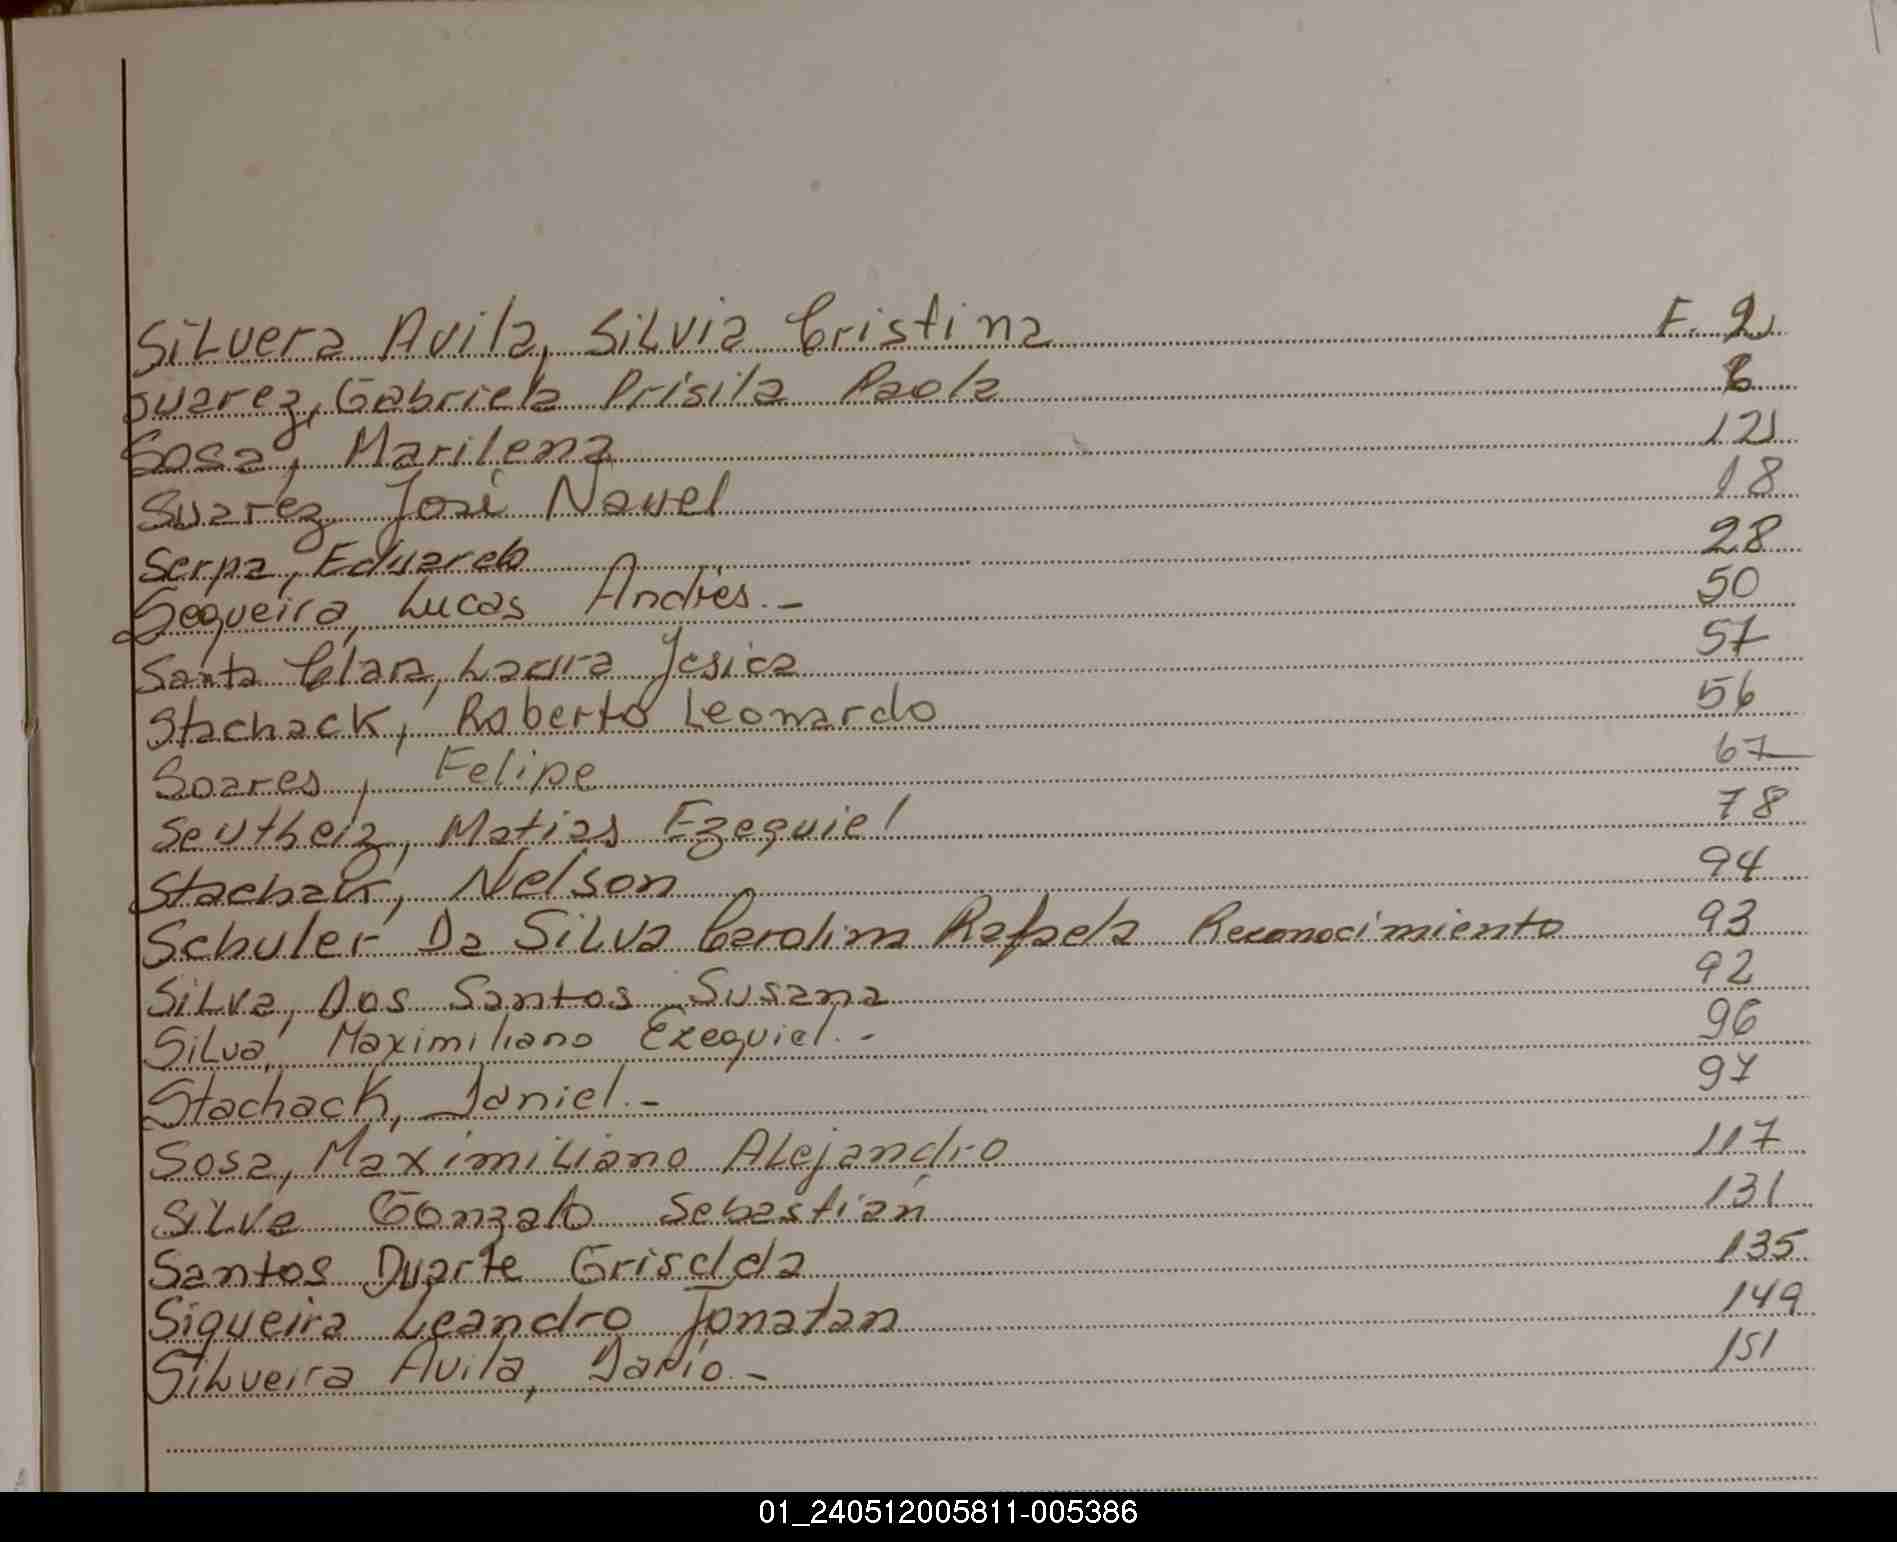 Silvera Avila, Silvia Cristina F. 2
Suarez, Gabriela Prisila Paola 6
Sosa, Marilena 12
Suarez José Nauel 18
Serpa, Eduardo 28
Seqveira, Lucas Andrés.- 50
Santa Clara, Laura Jesica 57
Stachack, Roberto Leonardo 56
Soares, Felipe 67
Seutheiz, Matias Ezequiel 78
Stachak, Nelson 94
Schuler Da Silva Carolim Rafaela Reconocimiento 93
Silva, Dos Santos Susana 92
Silva, Maximiliano Ezequiel.- 96
Stachack, Daniel.- 97
Sosa, Maximiliano Alejandro 117
Silva Gonzalo Sebastián 131
Santos Duarte Griselda 135
Siqueira Leandro Jonatan 149
Silveira Avila, Dario.- 151
01_240512005811-005386